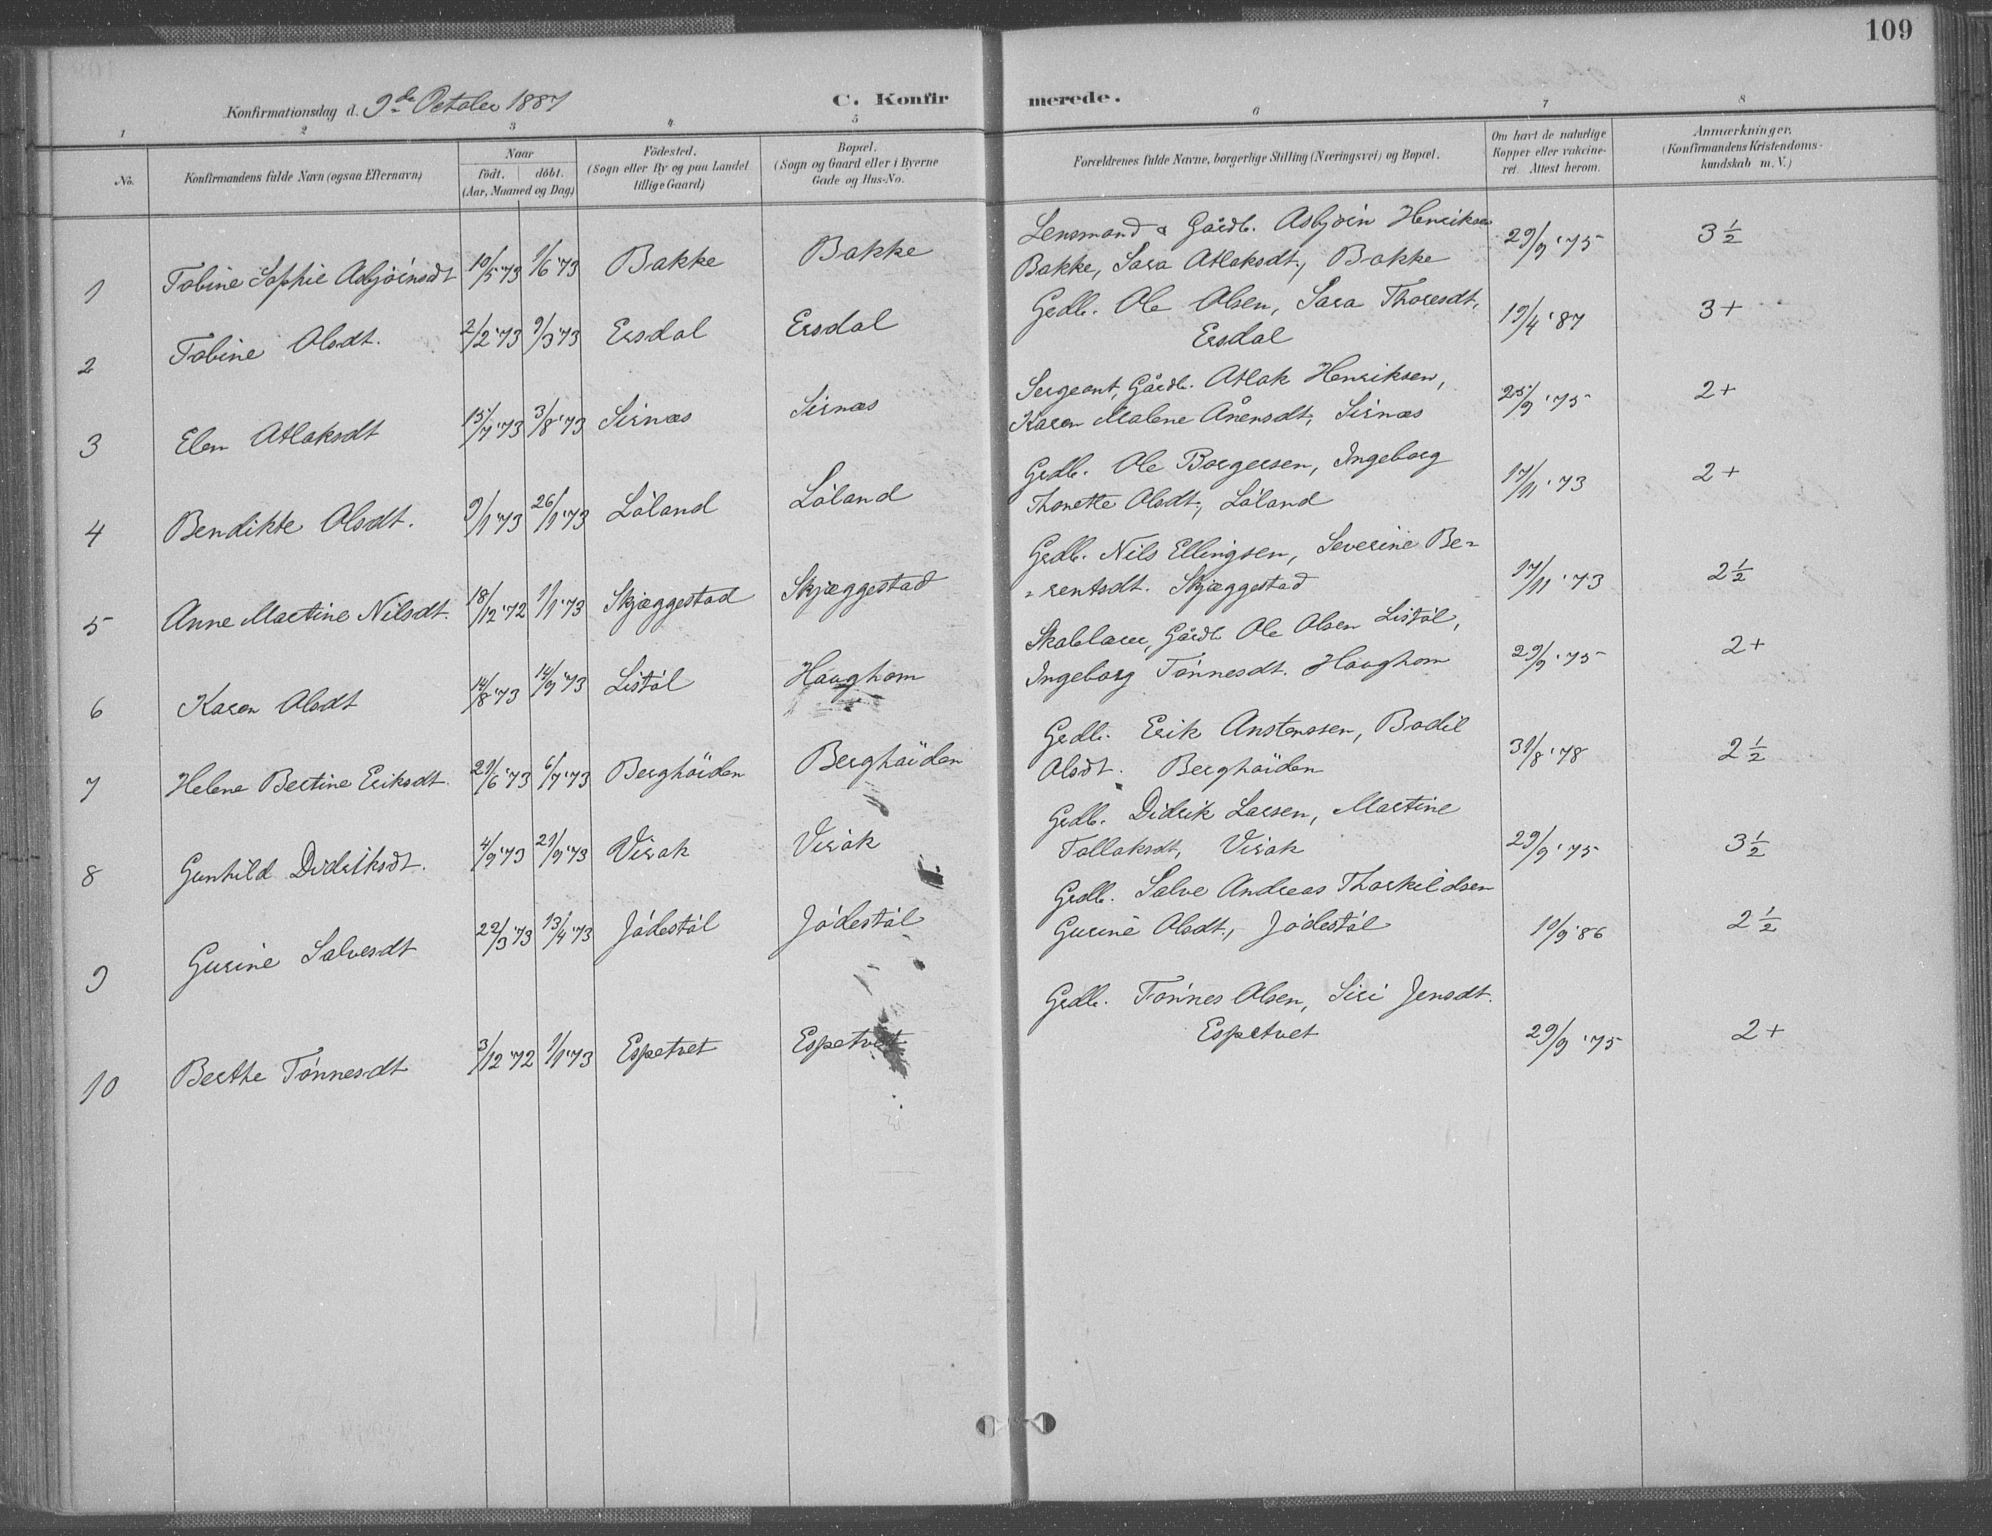 109
Konfirmationsdag d. 9de October 1887
C. Konfirmerede.
1 2 3 4 5 6 7 8
No.
Konfirmandens fulde Navn (ogsaa Efternavn)
Naar
født. døbt.
(Aar, Maaned og Dag)
Fødested.
(Sogn eller By og paa Landet
tillige Gaard)
Bopæl.
(Sogn og Gaard eller i Byerne
Gade og Hus-No.
Forældrenes fulde Navne, borgerlige Stilling (Næringsvei) og Bopæl.
Om havt de naturlige
Kopper eller vaccine-
ret. Attest herom.
Anmærkninger.
(Konfirmandens Kristendoms-
kundskab m. V.)
1 Tobine Sophie Asbjörnsdt 10/5 '73 1/6 '73 Bakke Bakke
Lensmand & Gårdb. Asbjörn Henriksen
Bakke, Sara Atlaksdt., Bakke 29/9 '75 3 1/2
2 Tobine Olsdt. 2/2 '73 9/3 '73 Ersdal Ersdal
Grdb. Ole Olsen, Sara Thoresdt,
Ersdal 19/4 '87 3+
3 Elen Atlaksdt 15/7 '73 3/8 '73 Sirnæs Sirnæs
Sergeant, Gårdb. Atlak Henriksen,
Karen Malene Ånensdt, Sirnæs 25/9 '75 2+
4 Bendikte Olsdt. 9/1 '73 26/1 '73 Löland Löland
Grdb. Ole Borgersen, Ingeborg
Thonette Olsdt., Löland 17/11 '73 2+
5 Anne Martine Nilsdt. 18/12 '72 1/1 '73 Skjæggestad Skjæggestad
Grdb. Nils Ellingsen, Severine Be-
-rentsdt. Skjæggestad 17/11 '73 2 1/2
6 Karen Olsdt 14/8 '73 14/9 '73 Listöl Haughom
Skolelærer, Gårdb Ole Olsen Listöl,
Ingeborg Tönnesdt. Haughom 29/9 '75 2+
7 Helene Bertine Eriksdt. 21/6 '73 6/7 '73 Berghöiden Berghöiden
Grdb. Erik Anstenssen, Bodil
Olsdt. Berghöiden 31/8 '78 2 1/2
8 Gunhild Didriksdt. 4/9 '73 21/9 '73 Virak Virak
Grdb. Didrik Larsen, Martine
Tollaksdt, Virak 29/9 '75 3 1/2
9 Gurine Salvesdt 22/3 '73 13/4 '73 Jödestöl Jödestöl
Grdb. Salve Andreas Thorkildsen
Gurine Olsdt., Jödestöl 10/9 '86 2 1/2
10 Berthe Tönnesdt 3/12 '72 1/1 '73 Espetvet Espetvet
Grdb. Tönnes Olsen, Siri Jensdt.
Espetvet 29/9 '75 2+